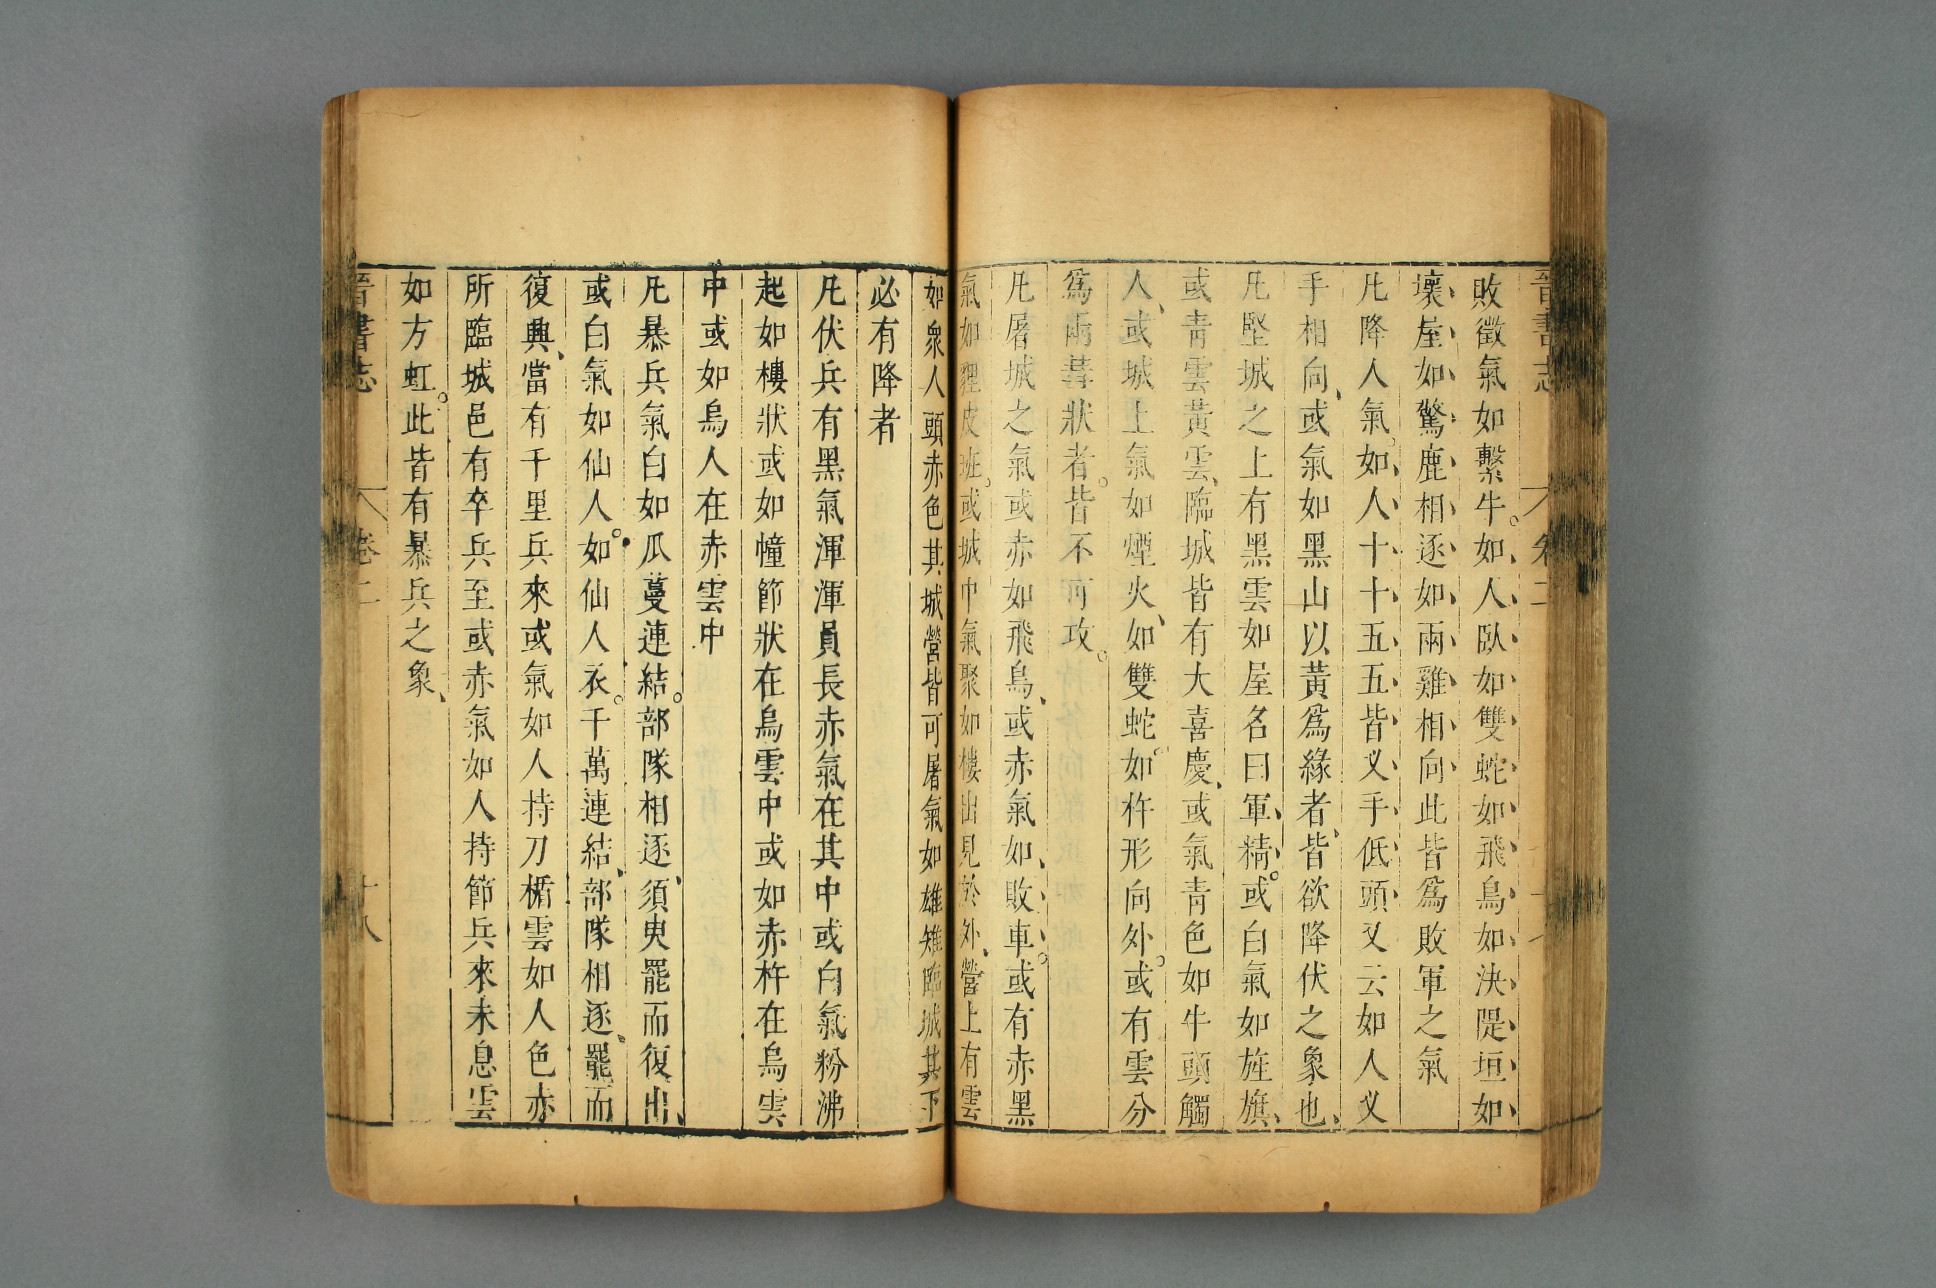 晉書志 卷二
敗徵氣如繫牛。如人臥如雙蛇如飛鳥如決隄垣如
壞屋如驚鹿相逐如兩雞相向此皆爲敗軍之氣
凡降人氣。如人十十五五皆义手低頭又云如人义
手相向、或氣如黑山以黃爲緣者、皆欲降伏之象也、
凡堅城之上有黑雲如屋名曰軍精。或白氣如旌旗、
或青雲黃雲、臨城皆有大喜慶、或氣青色如牛頭觸
人、或城上氣如煙火、如雙蛇。如杵形向外。或有雲分
爲兩彗狀者。皆不可攻。
凡屠城之氣或赤如飛鳥、或赤氣如敗車。或有赤黑
氣如貍皮班。或城中氣聚如樓出見於外、營上有雲
如衆人頭赤色其城營皆可屠氣如雄雉臨城其下
必有降者
凡伏兵有黑氣渾渾員長赤氣在其中或白氣粉沸
起如樓狀或如幢節狀在烏雲中或如赤杵在烏雲
中或如烏人在赤雲中
凡暴兵氣白如瓜蔓連結。部隊相逐、須臾罷而復出、
或白氣如仙人。如仙人衣。千萬連結、部隊相逐。罷而
復興、當有千里兵來或氣如人持刀楯雲如人色赤
所臨城邑有卒兵至或赤氣如人持節兵來未息雲
如方虹。此皆有暴兵之象、
晉書志 卷二 十八